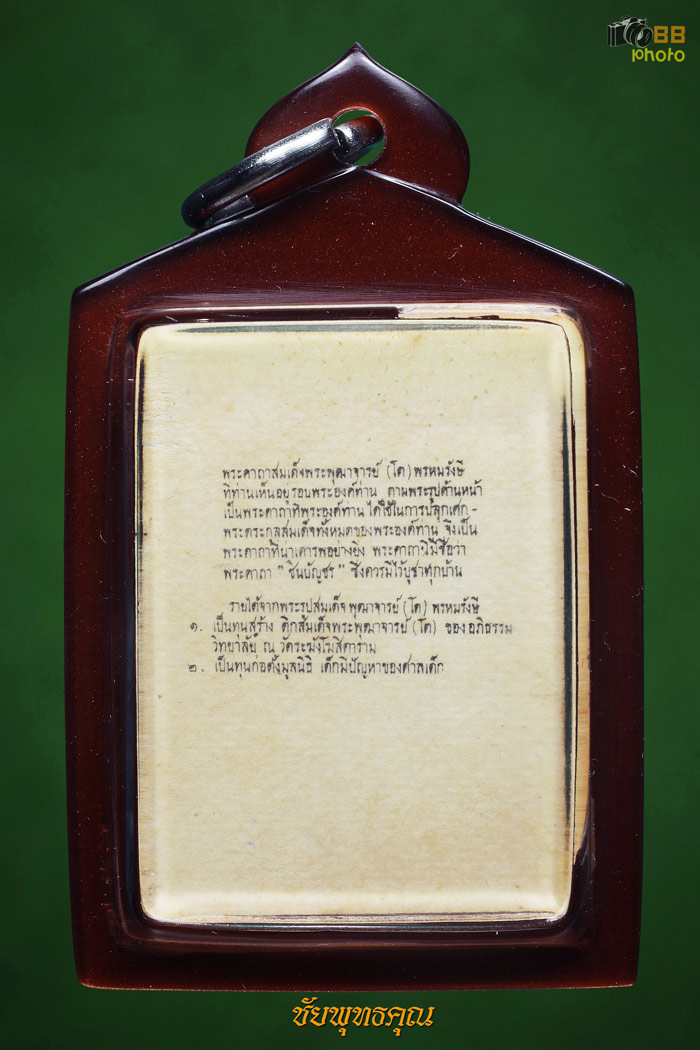 BB
photo
พระคาถาสมเด็จพระพุฒาจารย์ (โต) พรหมรังษี
ที่ท่านเห็นอยู่รอบพระองค์ท่าน ตามพระรูปด้านหน้า
เป็นพระคาถาที่พระองค์ท่าน ได้ใช้ในการปลุกเศก -
พระตระกูลสมเด็จทั้งหมดของพระองค์ท่าน จึงเป็น
พระคาถาที่น่าเคารพอย่างยิ่ง พระคาถานี้มีชื่อว่า
พระคาถา " ชินบัญชร " ซึ่งควรมีไว้บูชาทุกบ้าน
รายได้จากพระรูปสมเด็จพุฒาจารย์ (โต) พรหมรังษี
๑. เป็นทุนสร้าง ตึกสมเด็จพระพุฒาจารย์ (โต) ของอภิธรรม
วิทยาลัย ณ วัดระฆังโฆสิตาราม
๒. เป็นทุนก่อตั้งมูลนิธิ เด็กมีปัญหาของศาลเด็ก
ชัยพุทธคุณ